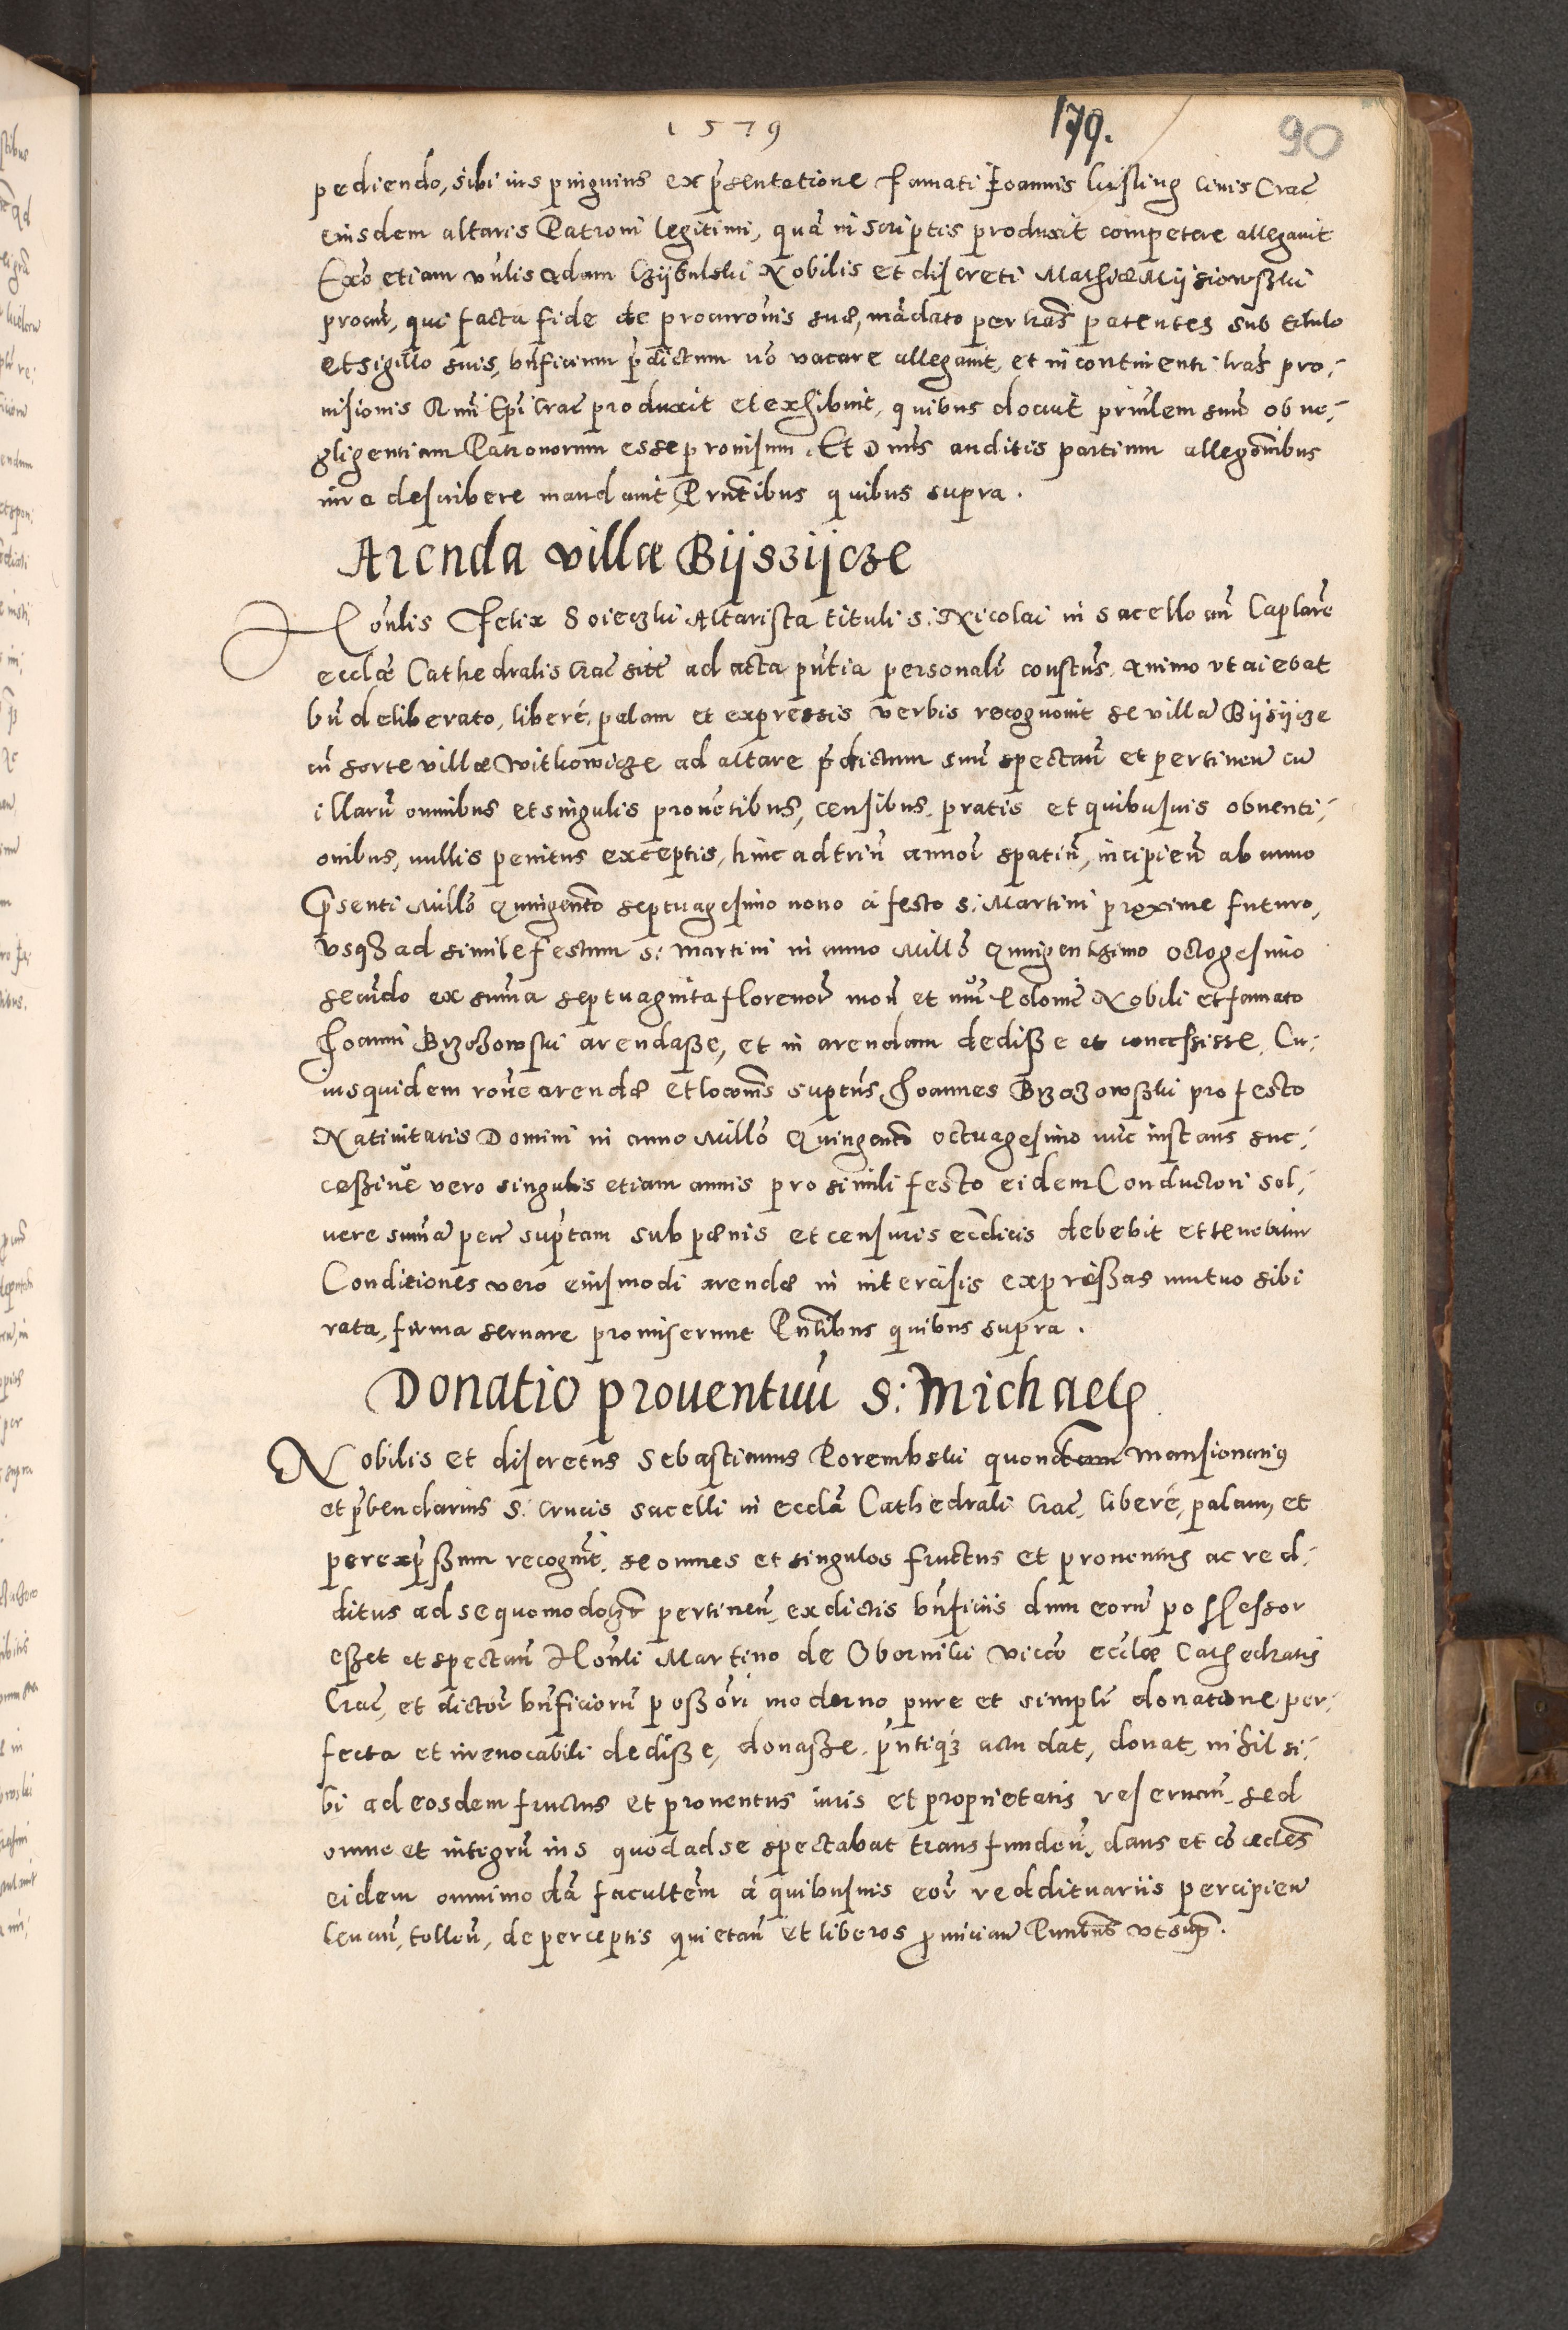 1579 179. 90
pediendo, sibi ius pinguius ex p̃sentatione famati Joannis Cursling ciuis Crac̃
eiusdem altaris Patroni legitimi, quã in scriptis produxit competere allegauit
Exo etiam vñlis Adam Nobilis et discreti Mathiæ
procur̃, qui facta fide de procuronis suæ, mãdato per lras patentes sub titulo
et sigillo suis, bñficium p̃dictum nõ vacare allegauit, et in continenti lras pro-
uisionis Rmi Epi Crac̃ produxit et exhibuit, quibus docuit prñlem suũ ob ne-
gligentiam Patronorum esse prouisum. Et Dñus auditis partium allegõnibus
iura describere mandauit, Prñtibus quibus supra.
Arenda villæ Bijsijcze
Honlis Felix Altarista tituli S. Nicolai in sacello
ecclæ Cathedralis Crac̃ sit̃ ad acta pñtia personalr̃ constũs, animo vt aiebat
bñ deliberato, liberé, palam et expressis verbis recognouit se villã Bijsijcze
cũ sorte villæ Witkowicze ad altare p̃dictum suũ spectañ et pertineñ cũ
illarũ omnibus et singulis prouẽtibus, censibus, pratis et quibusuis obuenti-
onibus, nullis penitus exceptis, hinc ad triũ annor̃ spatiũ, incipieñ ab anno
Pr̃senti Millõ Quingentõ septuagesimo nono á festo S. Martini proxime futuro,
vsq3 ad simile festum S. Martini in anno Millõ Quingentesimo octogesimo
secũdo ex sum̃a septuaginta florenor̃ moñ et nũi Polonic̃ Nobili et famato
Joanni Brzozowski arendaße, et in arendam dediße et concessisse. Cu-
ius quidem rõne arendæ et locõnis suprtũs Joannes Brzozowßki pro festo
Natiuitatis Domini in anno Millõ Quingentõ octuagesimo nũc instans suc-
ceßiuẽ vero singulis etiam annis pro simili festo eidem Conductori sol-
uere sum̃ã pecũ suprtam sub pœnis et censuris ecclicis debebit et tenebitur
Conditiones vero eiusmodi arendæ in intercisis expreßas mutuo sibi
rata, firma seruare promiserunt Prñtibus quibus supra.
Donatio prouentuũ S. Michaelis
Nobilis et discretus Sebastianus Porembski quondam Mansionarius
et p̃bendarius S. Crucis sacelli in ecclã Cathedrali Crac̃, liberé, palam, et
per exp̃ßum recognuit, se omnes et singulos fructus et prouentus ac red-
ditus ad se quomodolr̃ pertineñ, ex dictis bñficiis dum eorũ possessor
eßet et spectañ Honli Martino de Oborniki vicco ecclæ Cathedralis
Crac̃, et dictor̃ bñficiorũ poßori moderno pure et simplr̃ donatione per-
fecta et irreuocabili dediße, donaße, pñtiq3 actu dat, donat, nihil si-
bi ad eosdem fructus et prouentus iuris et proprietatis reseruañ, sed
omne et integrũ ius quod ad se spectabat transfundeñ, dans et cõcedẽs
eidem omnimodã facultẽm á quibusuis eor̃ reddituariis percipieñ
leuañ, tolleñ, de perceptis quietañ et liberos Prñtibus vt sup̃.